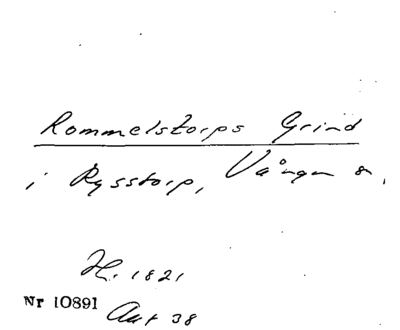 Rommelstorps Grind
i Rysstorp, Vångan 8.
H. 1821
Nr 10891
Aut 38